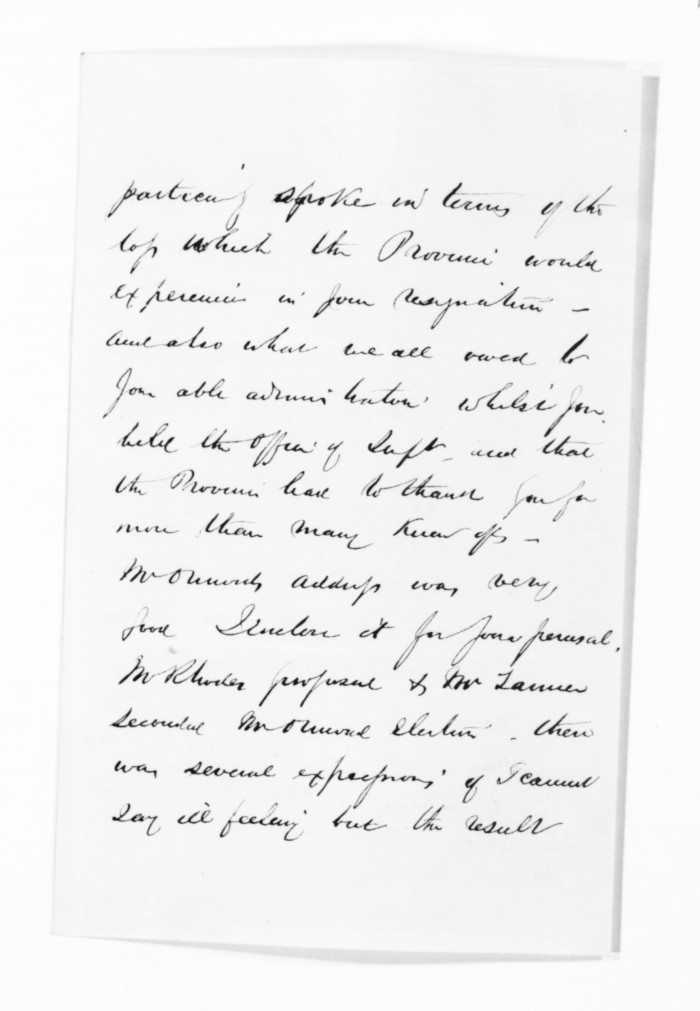 particully spoke in terms of the
loss which the Province would
experience in your resignation –
and also what we all owed to
your able administration whilst you
held the Office of Supt – and that
the Province had to thank you for
more than many knew of –
Mr Ormonds address was very
good I enclose it for your perusal.
Mr Rhodes proposed & Mr Tanner
seconded Mr Ormond election – there
was several expressions of I cannot
say ill feeling but the result